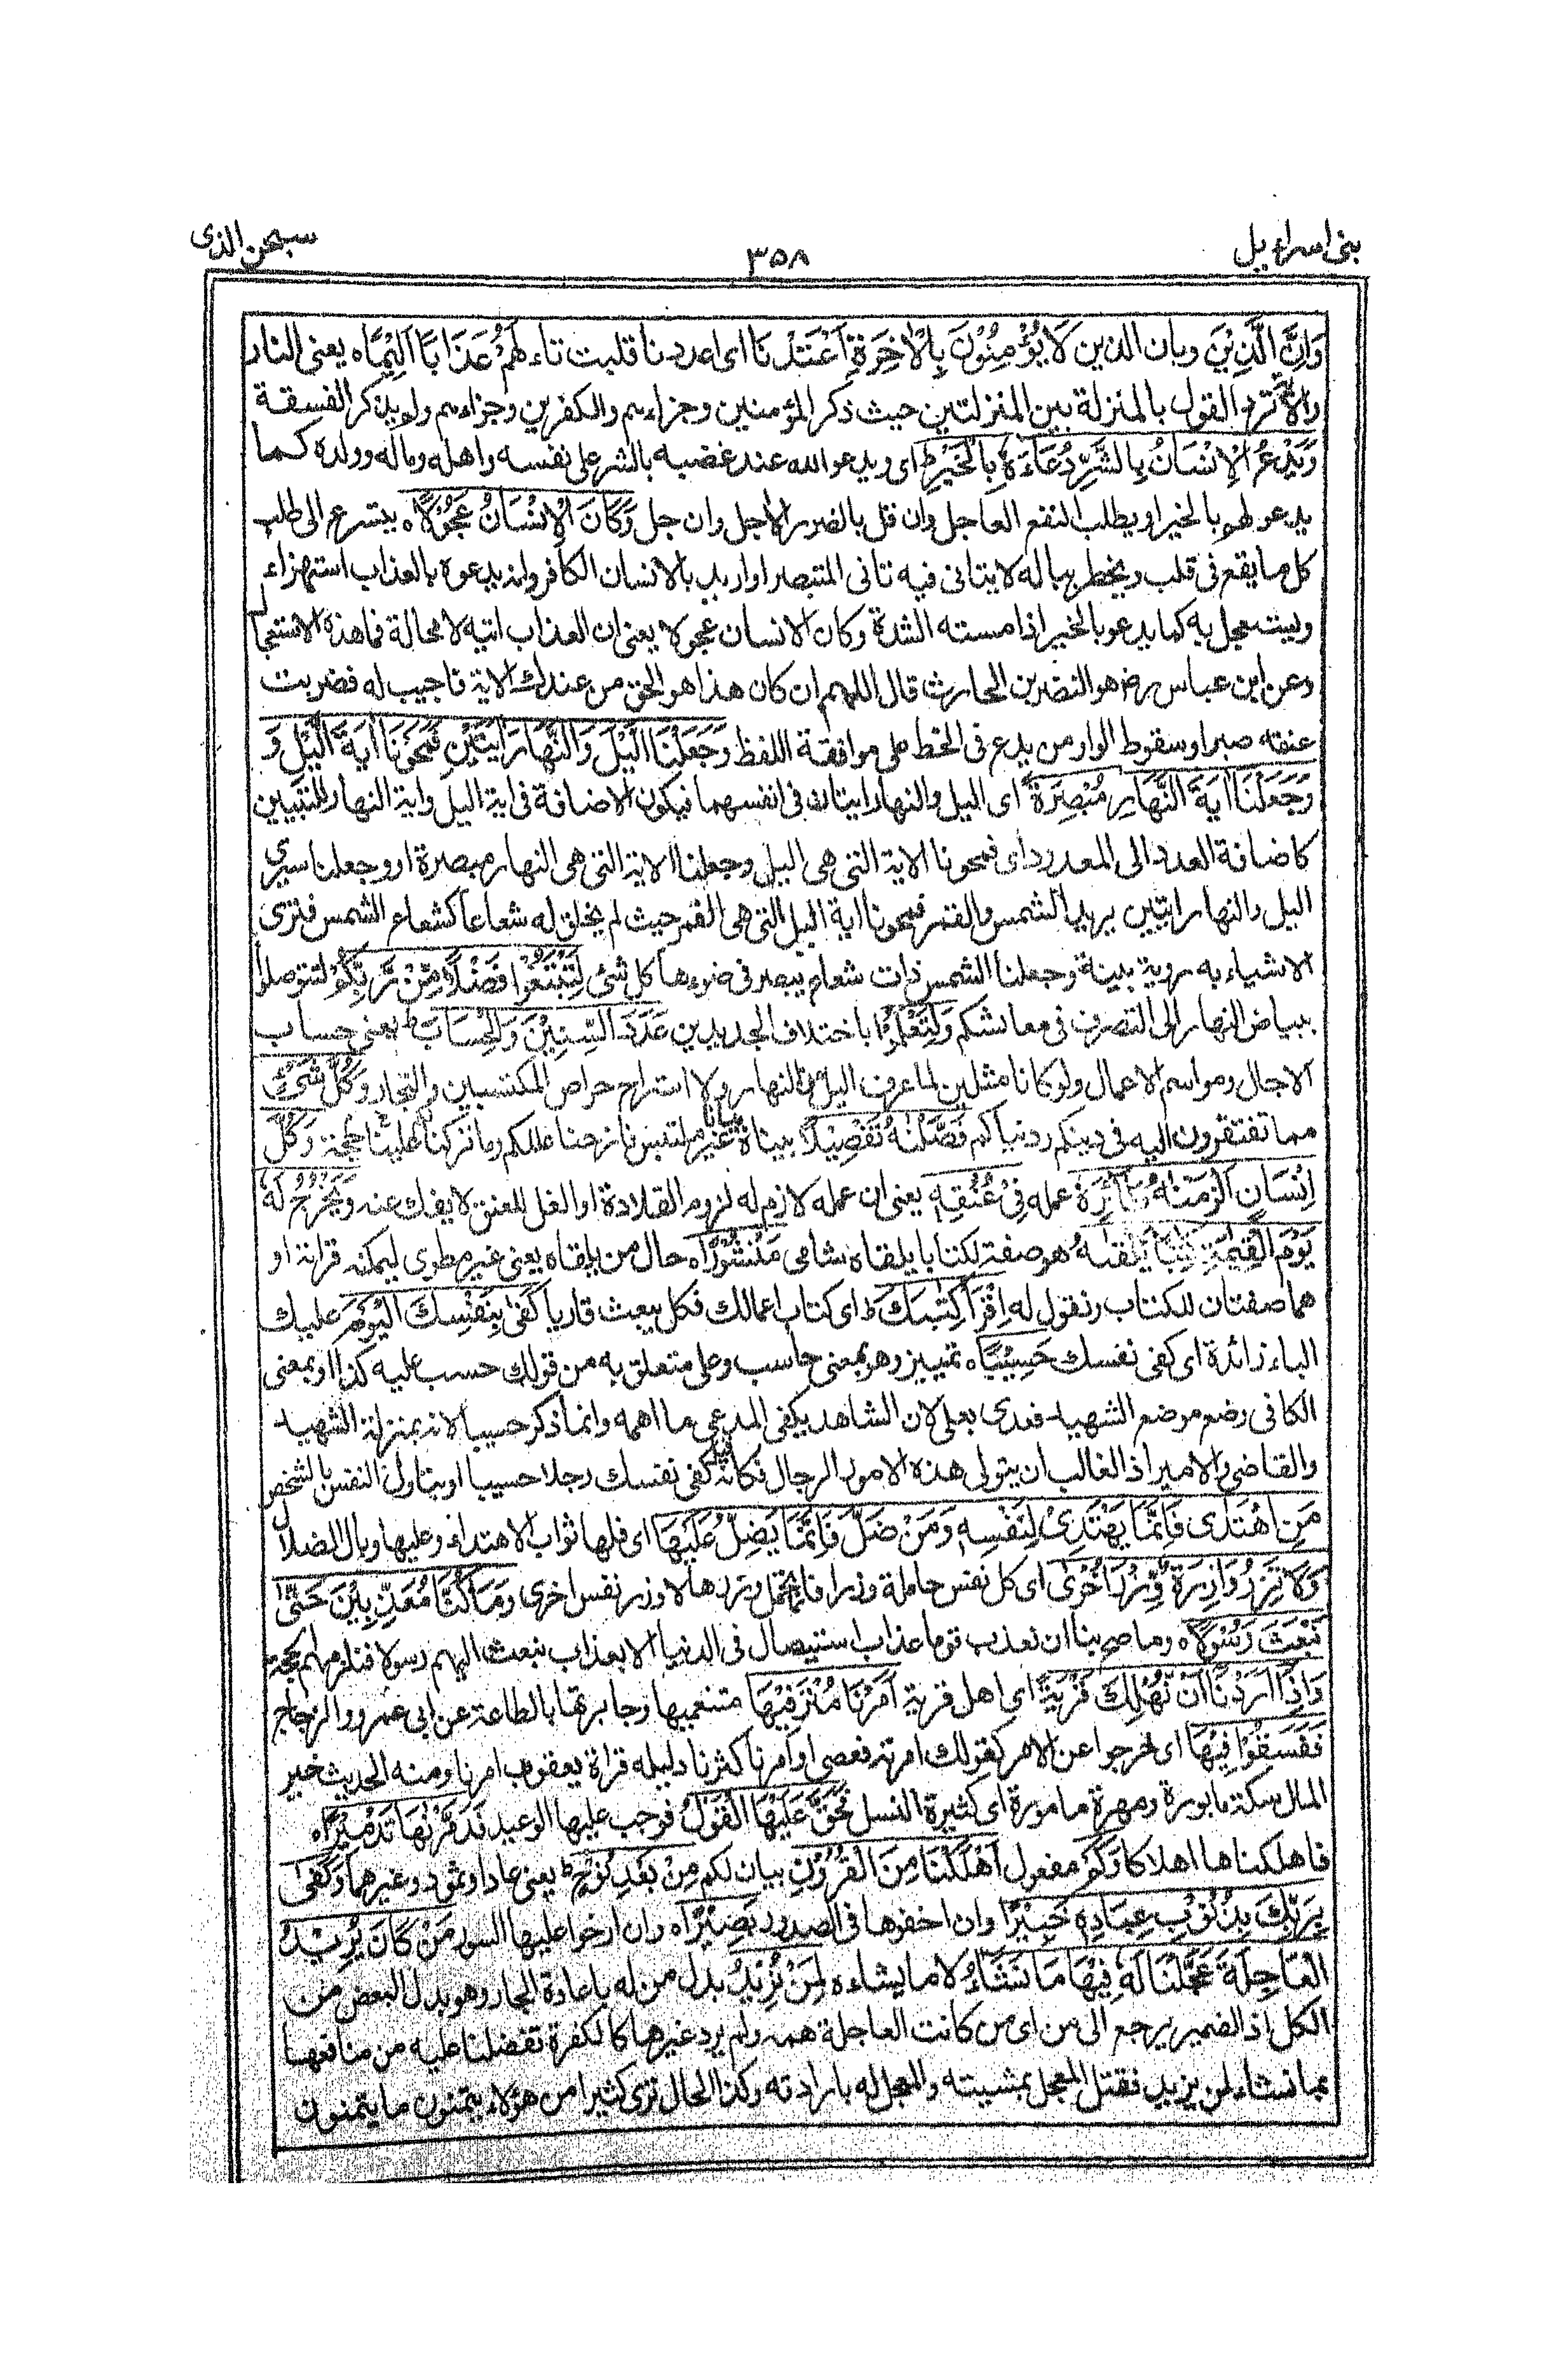 بنی اسراءیل
٣٥٨
سبحن الذی
وَاِنَّ الَّذِيْنَ وبان الذين لَا يُؤْمِنُوْنَ بِالْاٰخِرَةِ اَعْتَدْنَا ای اعددنا قلبت تاء لَهُمْ عَذَابًا اَلِيْمًا ه يعنی النار
والاٰية ترد القول بالمنزلة بين المنزلتين حيث ذكر المؤمنين وجزاءهم والكفرين وجزاءهم ولم يذكر الفسقة
وَيَدْعُ الْاِنْسَانُ بِالشَّرِّ دُعَآءَهٗ بِالْخَيْرِ ط ای ويدعو الله عند غضبه بالشر على نفسه واهله وماله وولده كما
يدعو لهم بالخير او يطلب النفع العاجل وان قل بالضرر الاٰجل وان جل وَكَانَ الْاِنْسَانُ عَجُوْلًا ه يتسرع الى طلب
كل ما يقع فی قلبه ويخطر بباله لا يتانى فيه تانی المتبصر او اريد بالانسان الكافر وانه يدعوه بالعذاب استهزاء
ويستعجل به كما يدعو بالخير اذا مسته الشدة وكان الانسان عجولا يعنی ان العذاب اتيه لا محالة فما هذه الاستعجال
وعن ابن عباس رض هو النضر بن الحارث قال اللهم ان كان هذا هو الحق من عندك الاٰية فاجيب له فضربت
عنقه صبرا وسقوط الواو من يدع فی الخط على موافقة اللفظ وَجَعَلْنَا الَّيْلَ وَالنَّهَارَ اٰيَتَيْنِ فَمَحَوْنَا اٰيَةَ الَّيْلِ وَ
وَجَعَلْنَا اٰيَةَ النَّهَارِ مُبْصِرَةً ای اليل والنهار ايتان فی انفسهما فيكون الاضافة فی اية اليل واية النهار للتبيين
كاضافة العدد الى المعدود ای فمحونا الاٰية التی هی اليل وجعلنا الاٰية التی هی النهار مبصرة او وجعلنا نيری
اليل والنهار ايتين يريد الشمس والقمر فمحونا اية اليل التی هی القمر حيث لم يخلق له شعاعا كشعاع الشمس فترى
الاشياء به روية بينة وجعلنا الشمس ذات شعاع يبصر فی ضوءها كل شئ لِتَبْتَغُوْا فَضْلًا مِّنْ رَّبِّكُمْ لتتوصلوا
ببياض النهار الى التصرف فی معائشكم وَلِتَعْلَمُوْا باختلاف الجديدين عَدَدَ السِّنِيْنَ وَالْحِسَابَ ط يعنی حساب
الاٰجال ومواسم الاعمال ولو كانا مثلين لما عرف اليل من النهار ولا استراح حراص المكتسبين والتجار وَكُلَّ شَیْءٍ
مما تفتقرون اليه فی دينكم ودنياكم فَصَّلْنٰهُ تَفْصِيْلًا بيناه بيانا غير ملتبس فازحنا عللكم وما تركنا لكم علينا حجة وَكُلَّ
اِنْسَانٍ اَلْزَمْنٰهُ طٰٓئِرَهٗ عمله فِیْ عُنُقِهٖ يعنی ان عمله لازم له لزوم القلادة او الغل للعنق لا يفك عنه وَنُخْرِجُ لَهٗ
يَوْمَ الْقِيٰمَةِ كِتٰبًا يَّلْقٰىهُ هو صفة لكتابا يلقاه شامی مَنْشُوْرًا ه حال من يلقاه يعنی غير مطوی ليمكنه قراءته او
هما صفتان للكتاب ونقول له اِقْرَأْ كِتٰبَكَ ط ای كتاب اعمالك فكل يبعث قاريا كَفٰى بِنَفْسِكَ الْيَوْمَ عَلَيْكَ
الباء زائدة ای كفى نفسك حَسِيْبًا ه تمييز وهو بمعنى حاسب وعلى متعلق به من قولك حسب عليه كذا او بمعنى
الكافی وضع موضع الشهيد فعدی بعلى لان الشاهد يكفی المدعی ما اهمه وانما ذكر حسيبا لانه بمنزلة الشهيد
والقاضی والامير اذ الغالب ان يتولى هذه الامور الرجال فكانه قيل كفى نفسك رجلا حسيبا او بتاول النفس بالشخص
مَنِ اهْتَدٰى فَاِنَّمَا يَهْتَدِیْ لِنَفْسِهٖ وَمَنْ ضَلَّ فَاِنَّمَا يَضِلُّ عَلَيْهَا ای فلها ثواب الاهتداء وعليها وبال الضلال
وَلَا تَزِرُ وَازِرَةٌ وِّزْرَ اُخْرٰى ای كل نفس حاملة وزرا فانما تحمل وزرها لا وزر نفس اخرى وَمَا كُنَّا مُعَذِّبِيْنَ حَتّٰى
نَبْعَثَ رَسُوْلًا ه وما صح منا ان نعذب قوما عذاب استيصال فی الدنيا الا بعد ان نبعث اليهم رسولا فنلزمهم الحجة
وَاِذَآ اَرَدْنَآ اَنْ نُّهْلِكَ قَرْيَةً ای اهل قرية اَمَرْنَا مُتْرَفِيْهَا متنعميها وجبابرتها بالطاعة عن ابی عمرو والزجاج
فَفَسَقُوْا فِيْهَا ای خرجوا عن الامر كقولك امرته فعصى او امرنا كثرنا دليله قراءة يعقوب امرنا ومنه الحديث خير
المال سكة مابورة ومهرة مامورة ای كثيرة النسل فَحَقَّ عَلَيْهَا الْقَوْلُ فوجب عليها الوعيد فَدَمَّرْنٰهَا تَدْمِيْرًا ه
فاهلكناها اهلاكا وَكَمْ مفعول اَهْلَكْنَا مِنَ الْقُرُوْنِ بيان لكم مِنْ بَعْدِ نُوْحٍ ط يعنی عادا وثمود وغيرهما وَكَفٰى
بِرَبِّكَ بِذُنُوْبِ عِبَادِهٖ خَبِيْرًا وان اخفوها فی الصدور بَصِيْرًا ه وان ارخوا عليها الستور مَنْ كَانَ يُرِيْدُ
الْعَاجِلَةَ عَجَّلْنَا لَهٗ فِيْهَا مَا نَشَآءُ لا ما يشاء ه لِمَنْ نُّرِيْدُ بدل من له باعادة الجار وهو بدل البعض من
الكل اذ الضمير يرجع الى من ای من كانت العاجلة همه ولم يرد غيرها كالكفرة تفضلنا عليه من منافعها
بما نشاء لمن نريد فقيد المعجل بمشيته والمعجل له بارادته وكذا الحال ترى كثيرا من هؤلاء يتمنون ما يتمنون